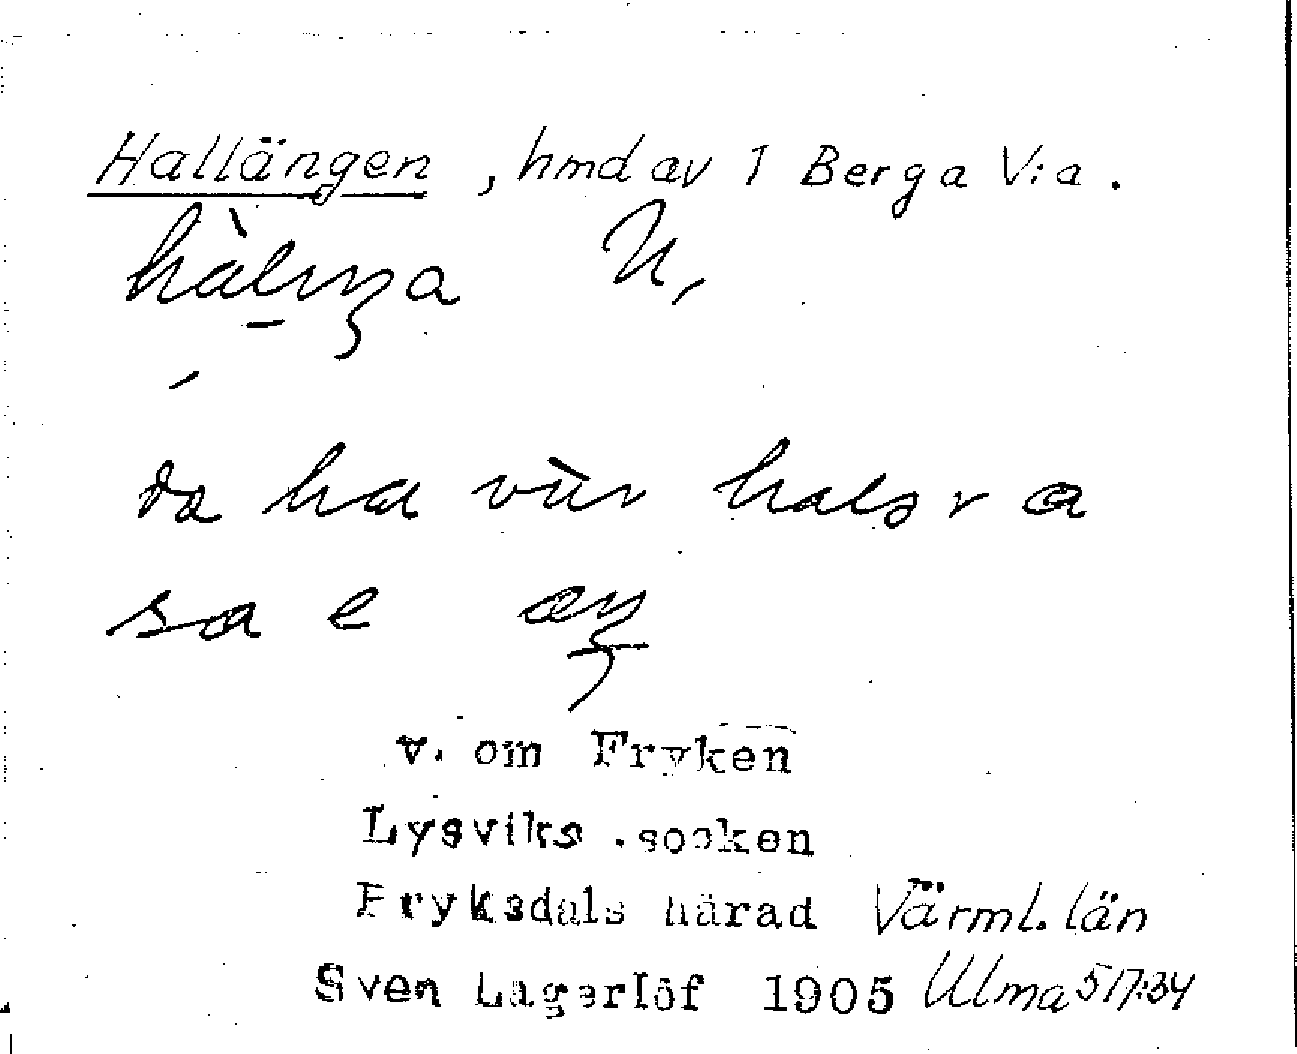 Hallängen, hmd av 1 Berga V:a.
hàlŋa U,
da ha vùr
sa e æŋ
v. om Fryken
Lysviks socken
Fryksdals härad Värml. län
Sven Lagerlöf 1905 Ulma 517:34